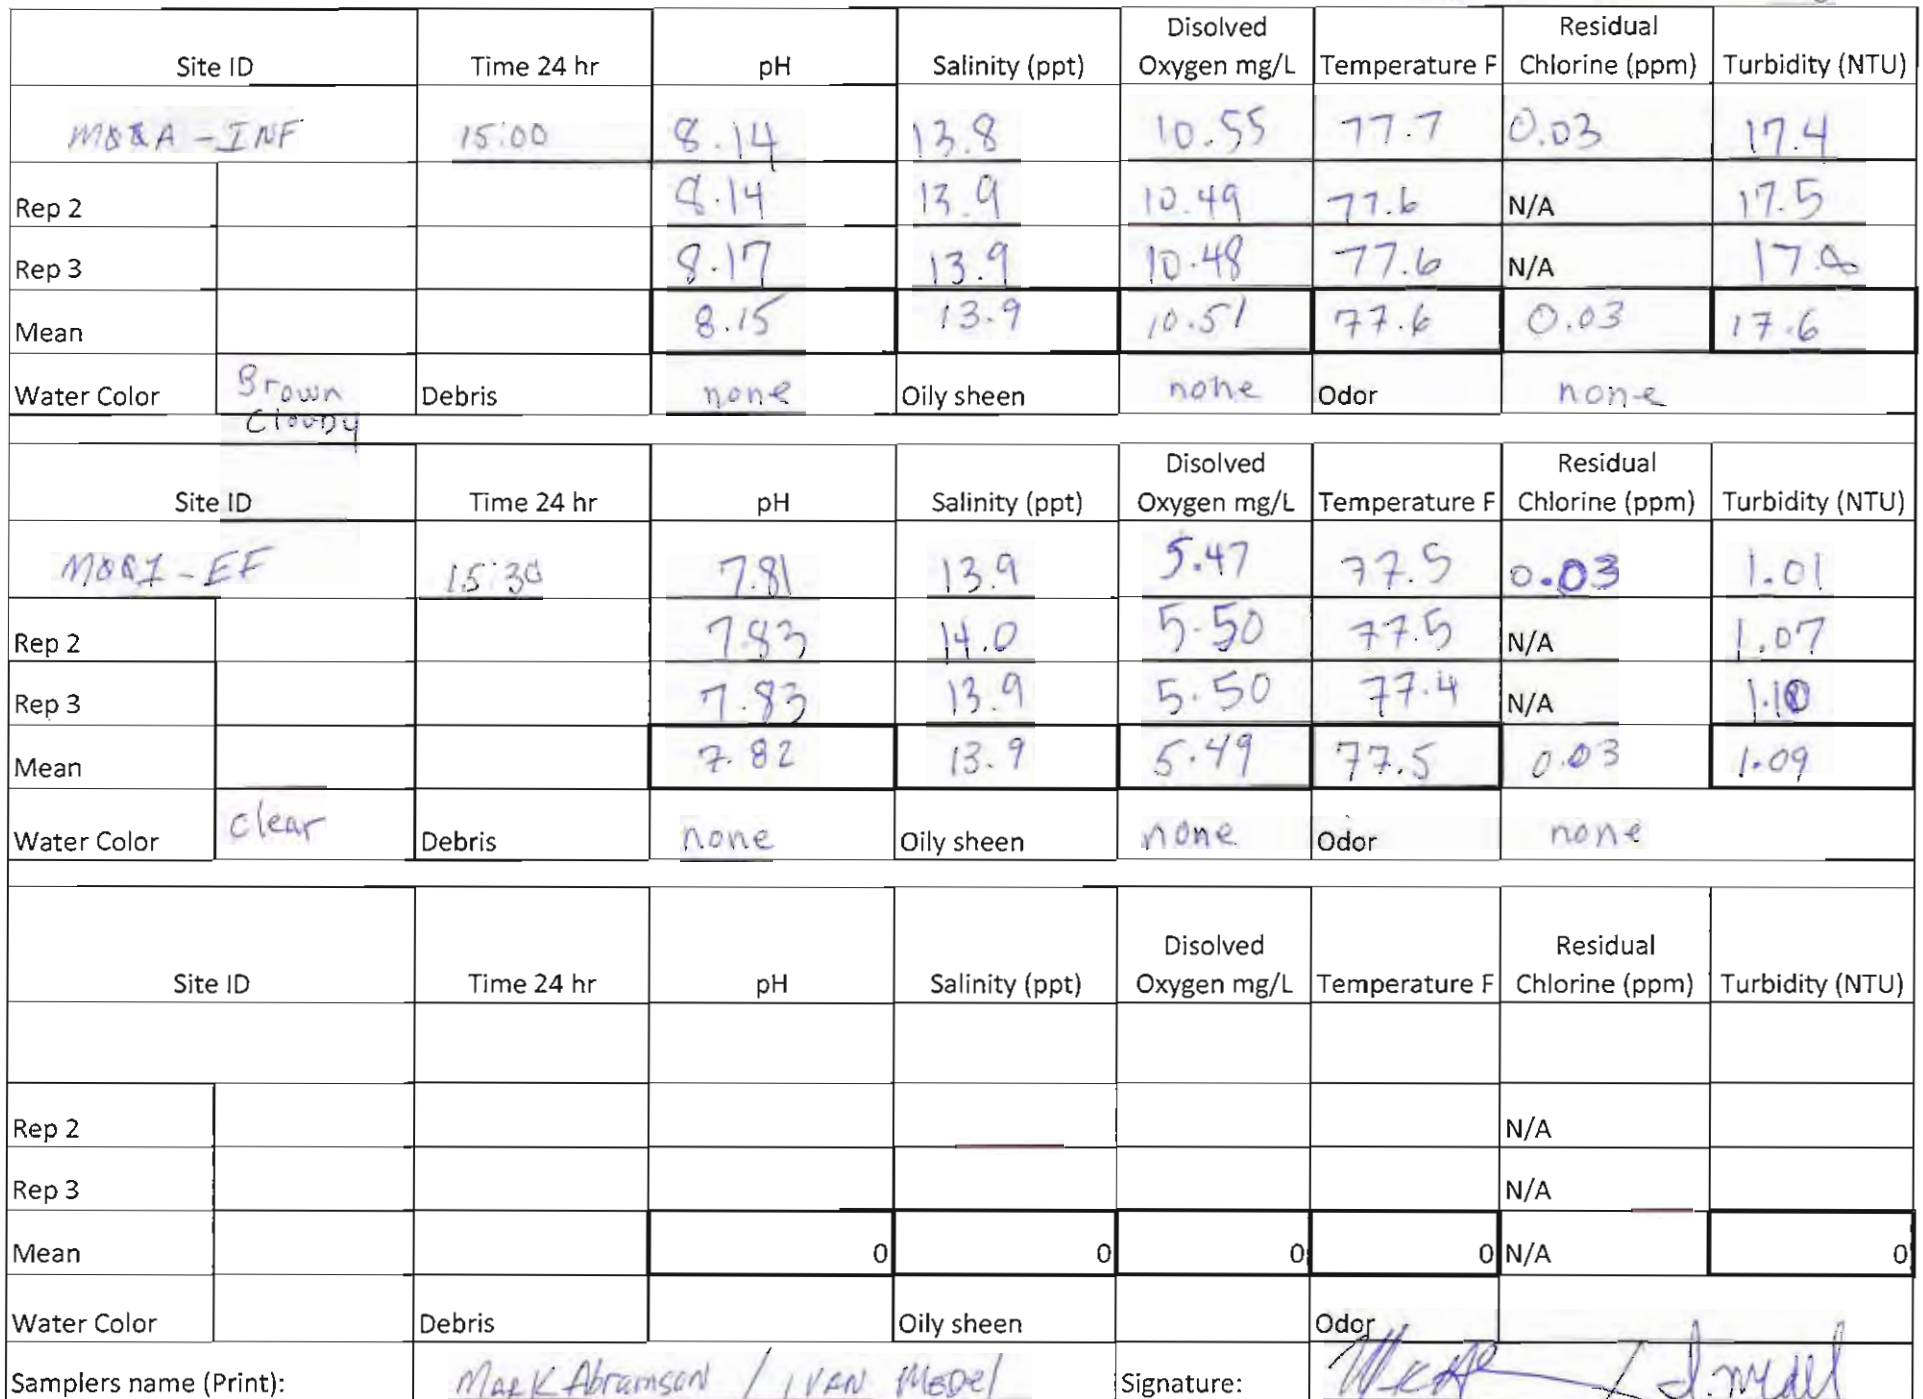 Site ID Time 24 hr pH Salinity (ppt) Disolved Oxygen mg/L Temperature F Residual Chlorine (ppm) Turbidity (NTU)
M&RA - INF 15:00 8.14 13.8 10.55 77.7 0.03 17.4
Rep 2 8.14 13.9 10.49 77.6 N/A 17.5
Rep 3 8.17 13.9 10.48 77.6 N/A
Mean 8.15 13.9 10.51 77.6 0.03 17.6
Water Color Brown Cloudy Debris none Oily sheen none Odor none
Site ID Time 24 hr pH Salinity (ppt) Disolved Oxygen mg/L Temperature F Residual Chlorine (ppm) Turbidity (NTU)
- EF 15:30 7.81 13.9 5.47 77.5 0.03 1.01
Rep 2 7.83 14.0 5.50 77.5 N/A 1.07
Rep 3 7.83 13.9 5.50 77.4 N/A 1.10
Mean 7.82 13.9 5.49 77.5 0.03 1.09
Water Color clear Debris none Oily sheen none Odor none
Site ID Time 24 hr pH Salinity (ppt) Disolved Oxygen mg/L Temperature F Residual Chlorine (ppm) Turbidity (NTU)
Rep 2 N/A
Rep 3 N/A
Mean 0 0 0 0 N/A 0
Water Color Debris Oily sheen Odor
Samplers name (Print): Mark Abramson / IVAN MEDel Signature: